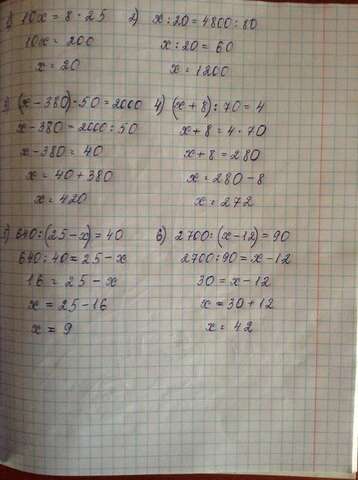 1) 10x = 8 · 25
10x = 200
x = 20
2) x : 20 = 4800 : 80
x : 20 = 60
x = 1200
3) (x - 380) · 50 = 2000
x - 380 = 2000 : 50
x - 380 = 40
x = 40 + 380
x = 420
4) (x + 8) : 70 = 4
x + 8 = 4 · 70
x + 8 = 280
x = 280 - 8
x = 272
5) 640 : (25 - x) = 40
640 : 40 = 25 - x
16 = 25 - x
x = 25 - 16
x = 9
6) 2700 : (x - 12) = 90
2700 : 90 = x - 12
30 = x - 12
x = 30 + 12
x = 42